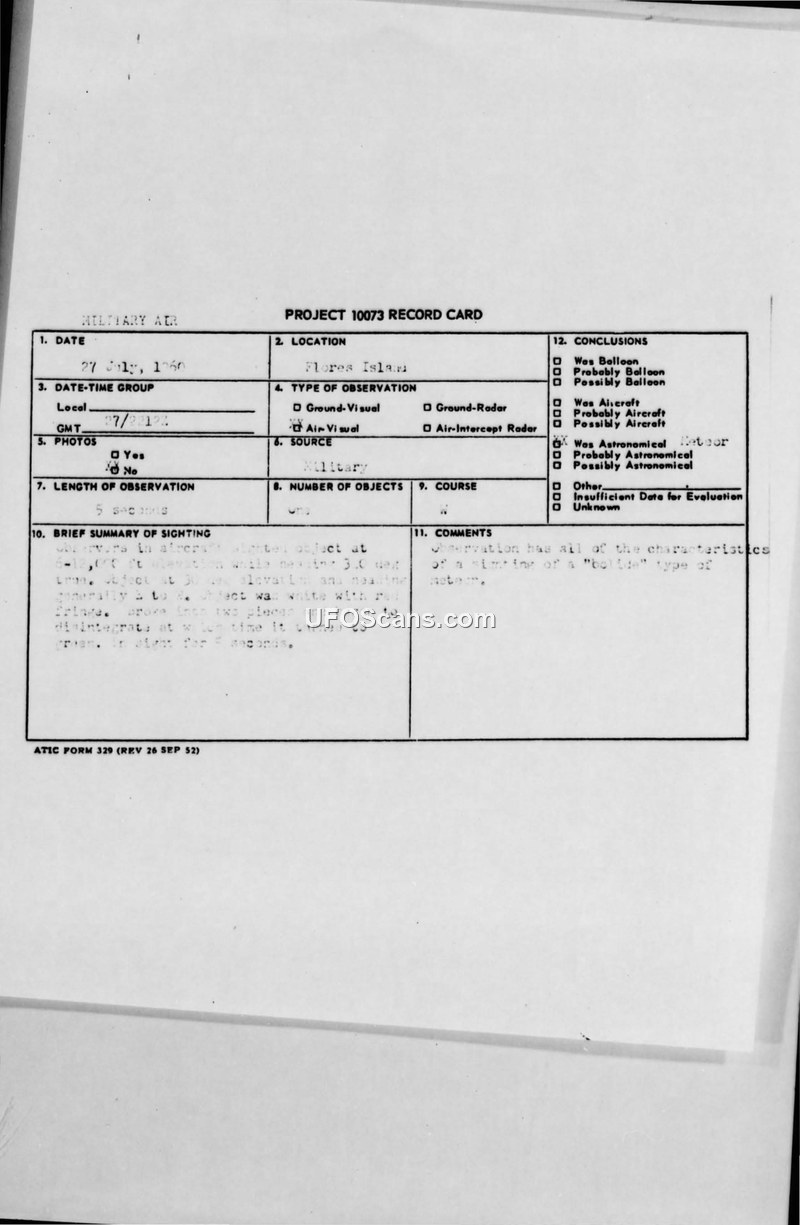 MILITARY AIR
PROJECT 10073 RECORD CARD
1. DATE
27 July, 1960
2. LOCATION
Flores Island
3. DATE-TIME GROUP
Local
GMT 27/
4. TYPE OF OBSERVATION
Ground-Visual
Ground-Radar
Air-Visual
Air-Intercept Radar
5. PHOTOS
Yes
No
6. SOURCE
Military
7. LENGTH OF OBSERVATION
5 seconds
8. NUMBER OF OBJECTS
one
9. COURSE
W
10. BRIEF SUMMARY OF SIGHTING
Observers in aircraft sighted object at
ft while heading deg
true. Object at elevation and heading
generally E to W. Object was white with red
fringe. Broke into two pieces to
disintegrate at which time it turned to
green. In sight for 5 seconds.
11. COMMENTS
Observation has all of the characteristics
of a sighting of a "bolide" type of
meteor.
12. CONCLUSIONS
Was Balloon
Probably Balloon
Possibly Balloon
Was Aircraft
Probably Aircraft
Possibly Aircraft
Was Astronomical Meteor
Probably Astronomical
Possibly Astronomical
Other
Insufficient Data for Evaluation
Unknown
ATIC FORM 329 (REV 26 SEP 52)
UFOScans.com